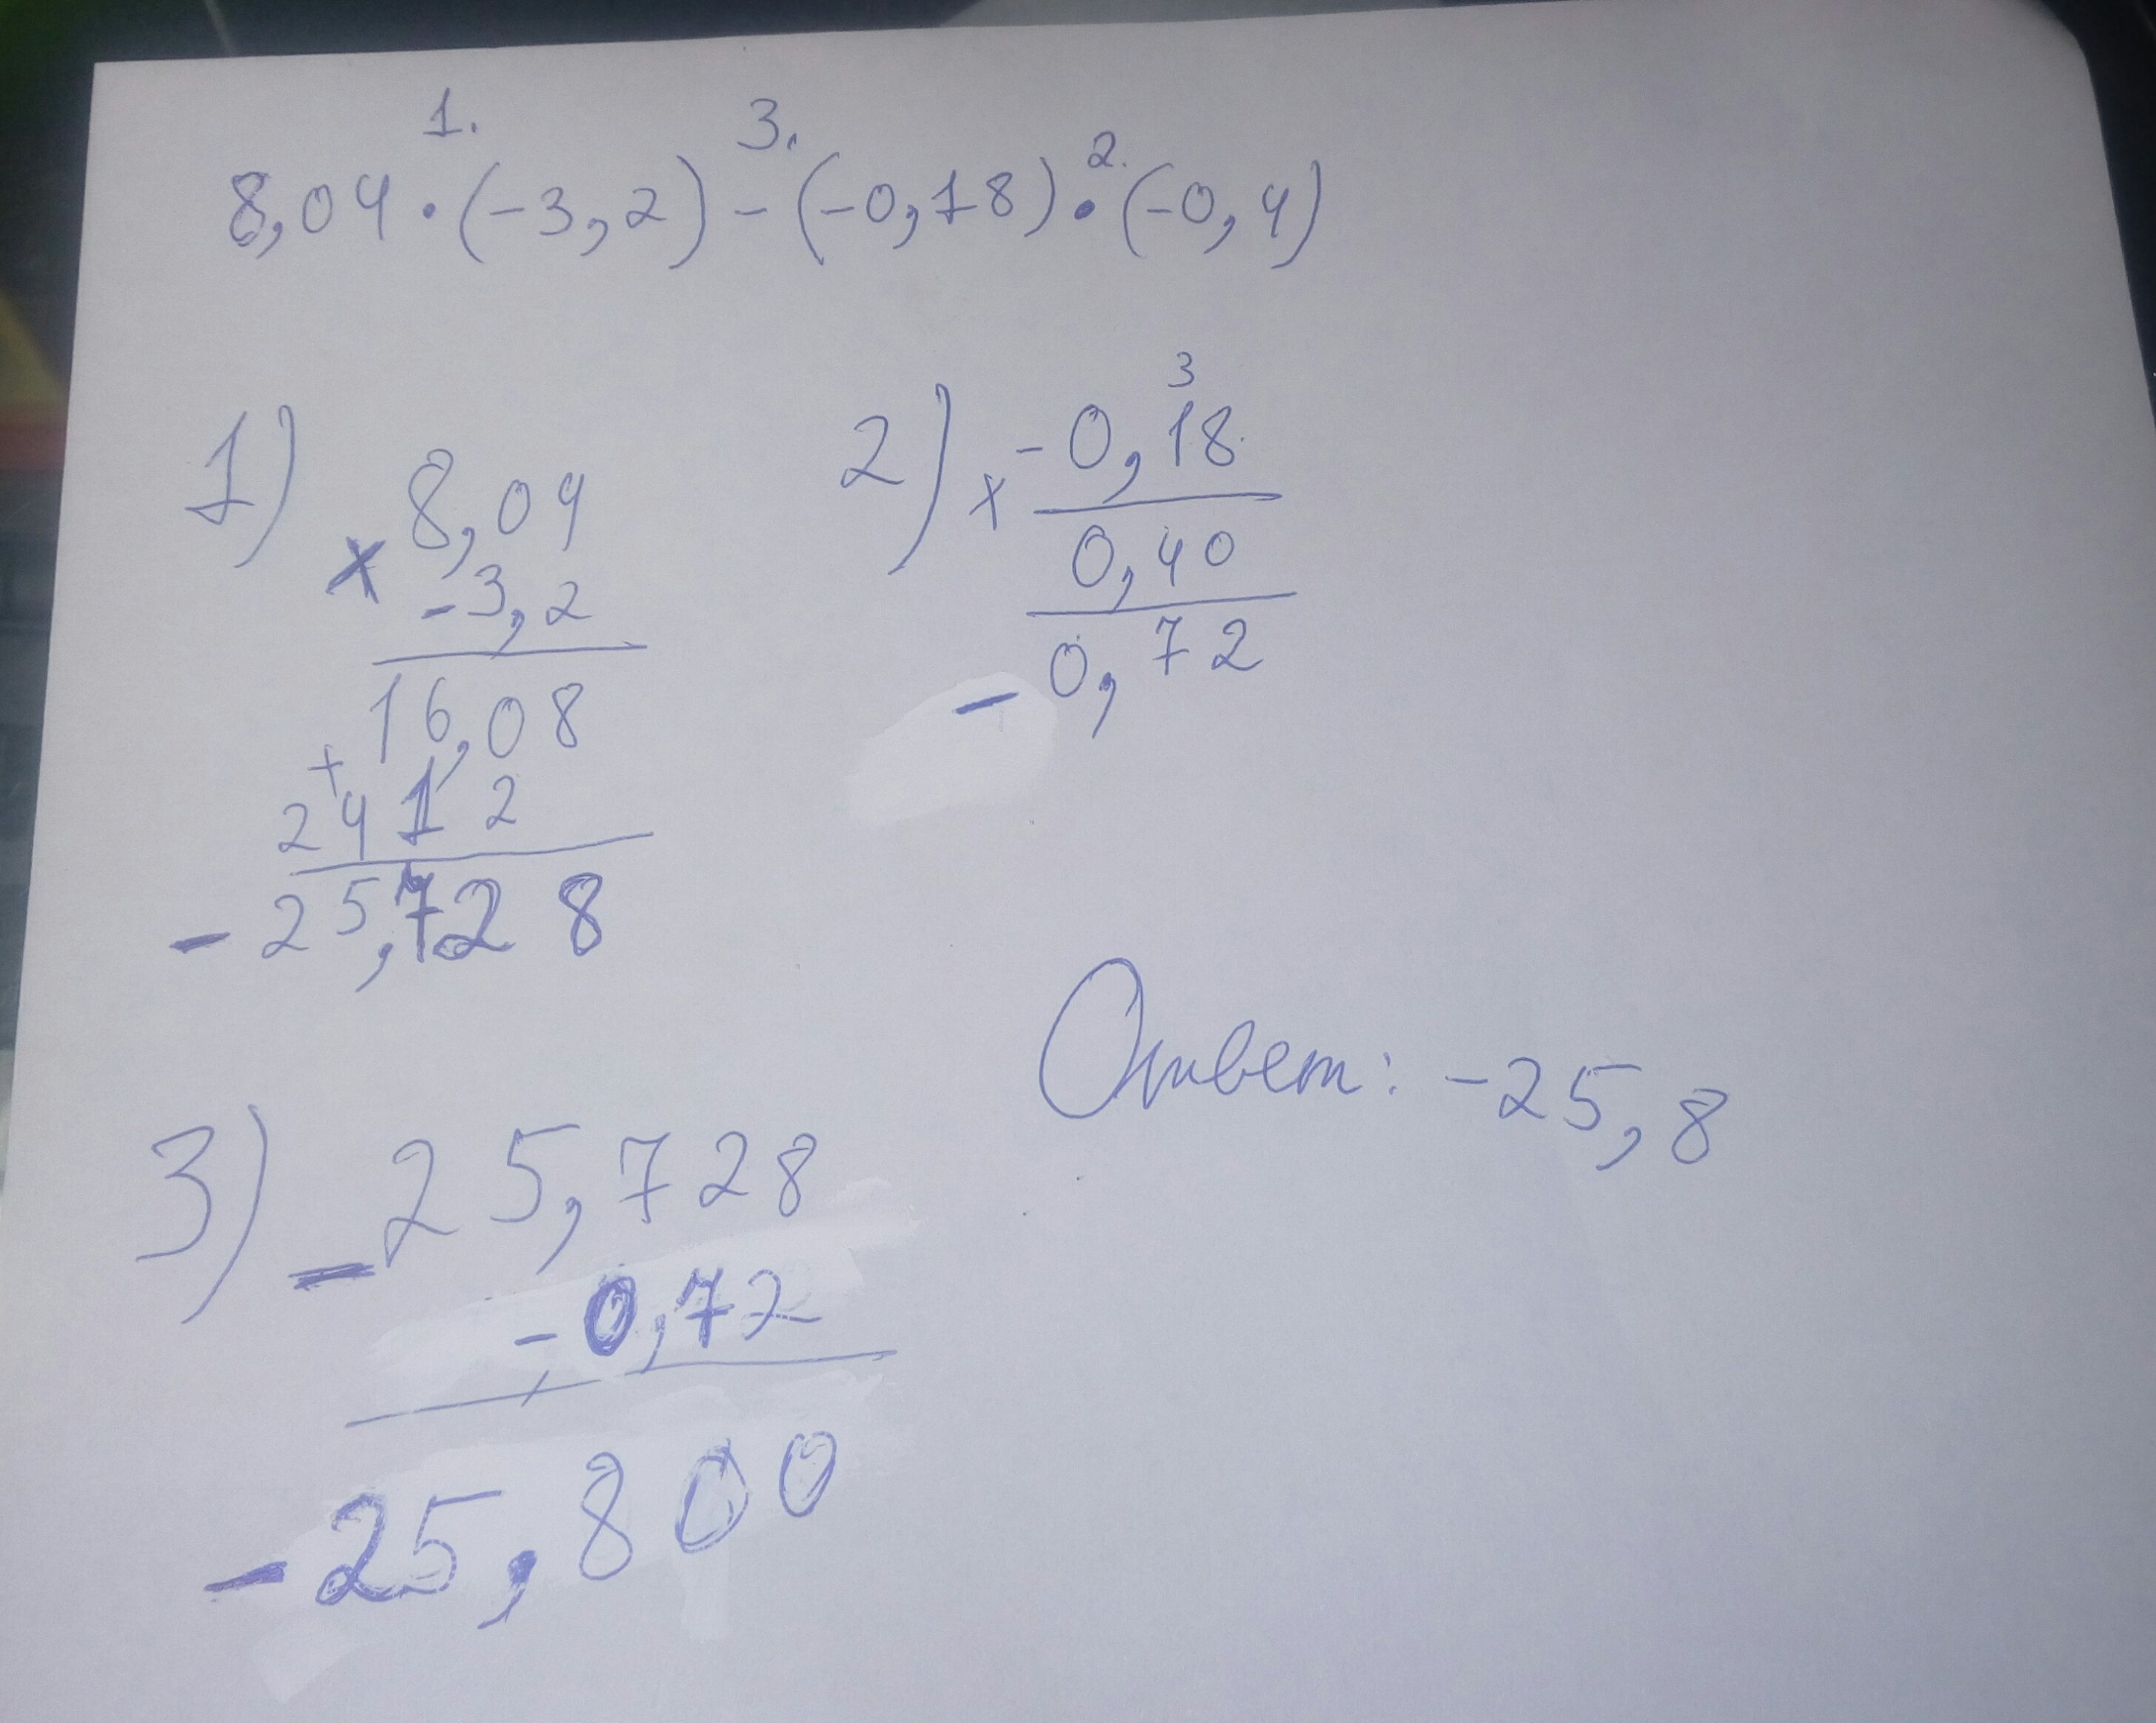 1. 3. 2.
8,04 · (-3,2) - (-0,18) · (-0,4)
1)
8,04
× -3,2
16,08
+
2412
-25,728
2)
3
× -0,18
0,40
-0,72
3)
-25,728
-0,72
-25,800
Ответ: -25,8